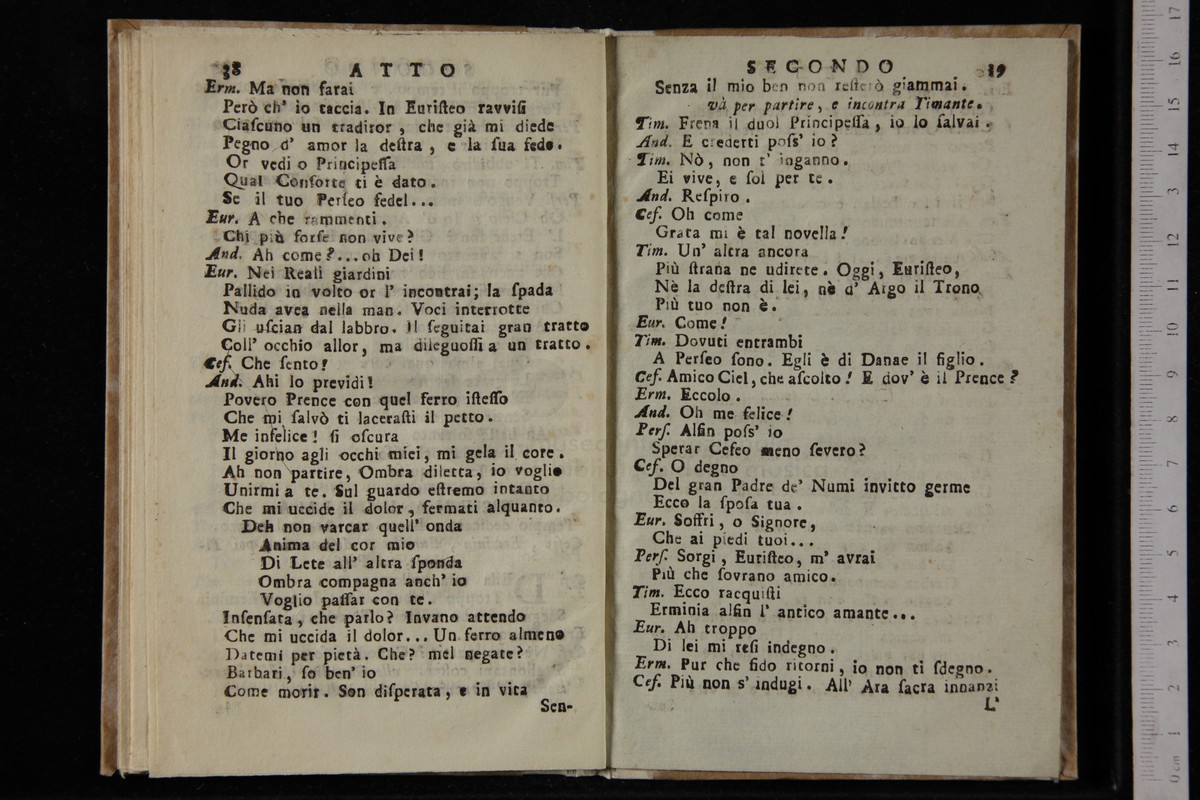 38 ATTO
Erm. Ma non farai
Però ch' io taccia. In Euriſteo ravviſi
Ciaſcuno un traditor, che già mi diede
Pegno d' amor la deſtra, e la ſua fede.
Or vedi o Principeſſa
Qual Conſorte ti è dato.
Se il tuo Perſeo fedel...
Eur. A che rammenti.
Chi più forſe non vive?
And. Ah come?...oh Dei!
Eur. Nei Reali giardini
Pallido in volto or l' incontrai; la ſpada
Nuda avea nella man. Voci interrotte
Gli uſcian dal labbro. Il ſeguitai gran tratto
Coll' occhio allor, ma dileguoſſi a un tratto.
Ceſ. Che ſento!
And. Ahi lo previdi!
Povero Prence con quel ferro iſteſſo
Che mi ſalvò ti laceraſti il petto.
Me infelice! ſi oſcura
Il giorno agli occhi miei, mi gela il core.
Ah non partire, Ombra diletta, io voglio
Unirmi a te. Sul guardo eſtremo intanto
Che mi uccide il dolor, fermati alquanto.
Deh non varcar quell' onda
Anima del cor mio
Di Lete all' altra ſponda
Ombra compagna anch' io
Voglio paſſar con te.
Inſenſata, che parlo? Invano attendo
Che mi uccida il dolor... Un ferro almeno
Datemi per pietà. Che? mel negate?
Barbari, ſo ben' io
Come morir. Son diſperata, e in vita
Sen-
SECONDO 39
Senza il mio ben non reſterò giammai.
và per partire, e incontra Timante.
Tim. Frena il duol Principeſſa, io lo ſalvai.
And. E crederti poſs' io?
Tim. Nò, non t' inganno.
Ei vive, e ſol per te.
And. Reſpiro.
Ceſ. Oh come
Grata mi è tal novella!
Tim. Un' altra ancora
Più ſtrana ne udirete. Oggi, Euriſteo,
Nè la deſtra di lei, nè d' Argo il Trono
Più tuo non è.
Eur. Come!
Tim. Dovuti entrambi
A Perſeo ſono. Egli è di Danae il figlio.
Ceſ. Amico Ciel, che aſcolto! E dov' è il Prence?
Erm. Eccolo.
And. Oh me felice!
Perſ. Alfin poſs' io
Sperar Cefeo meno ſevero?
Ceſ. O degno
Del gran Padre de' Numi invitto germe
Ecco la ſpoſa tua.
Eur. Soffri, o Signore,
Che ai piedi tuoi...
Perſ. Sorgi, Euriſteo, m' avrai
Più che ſovrano amico.
Tim. Ecco racquiſti
Erminia alfin l' antico amante...
Eur. Ah troppo
Di lei mi reſi indegno.
Erm. Pur che fido ritorni, io non ti ſdegno.
Ceſ. Più non s' indugi. All' Ara ſacra innanzi
L'